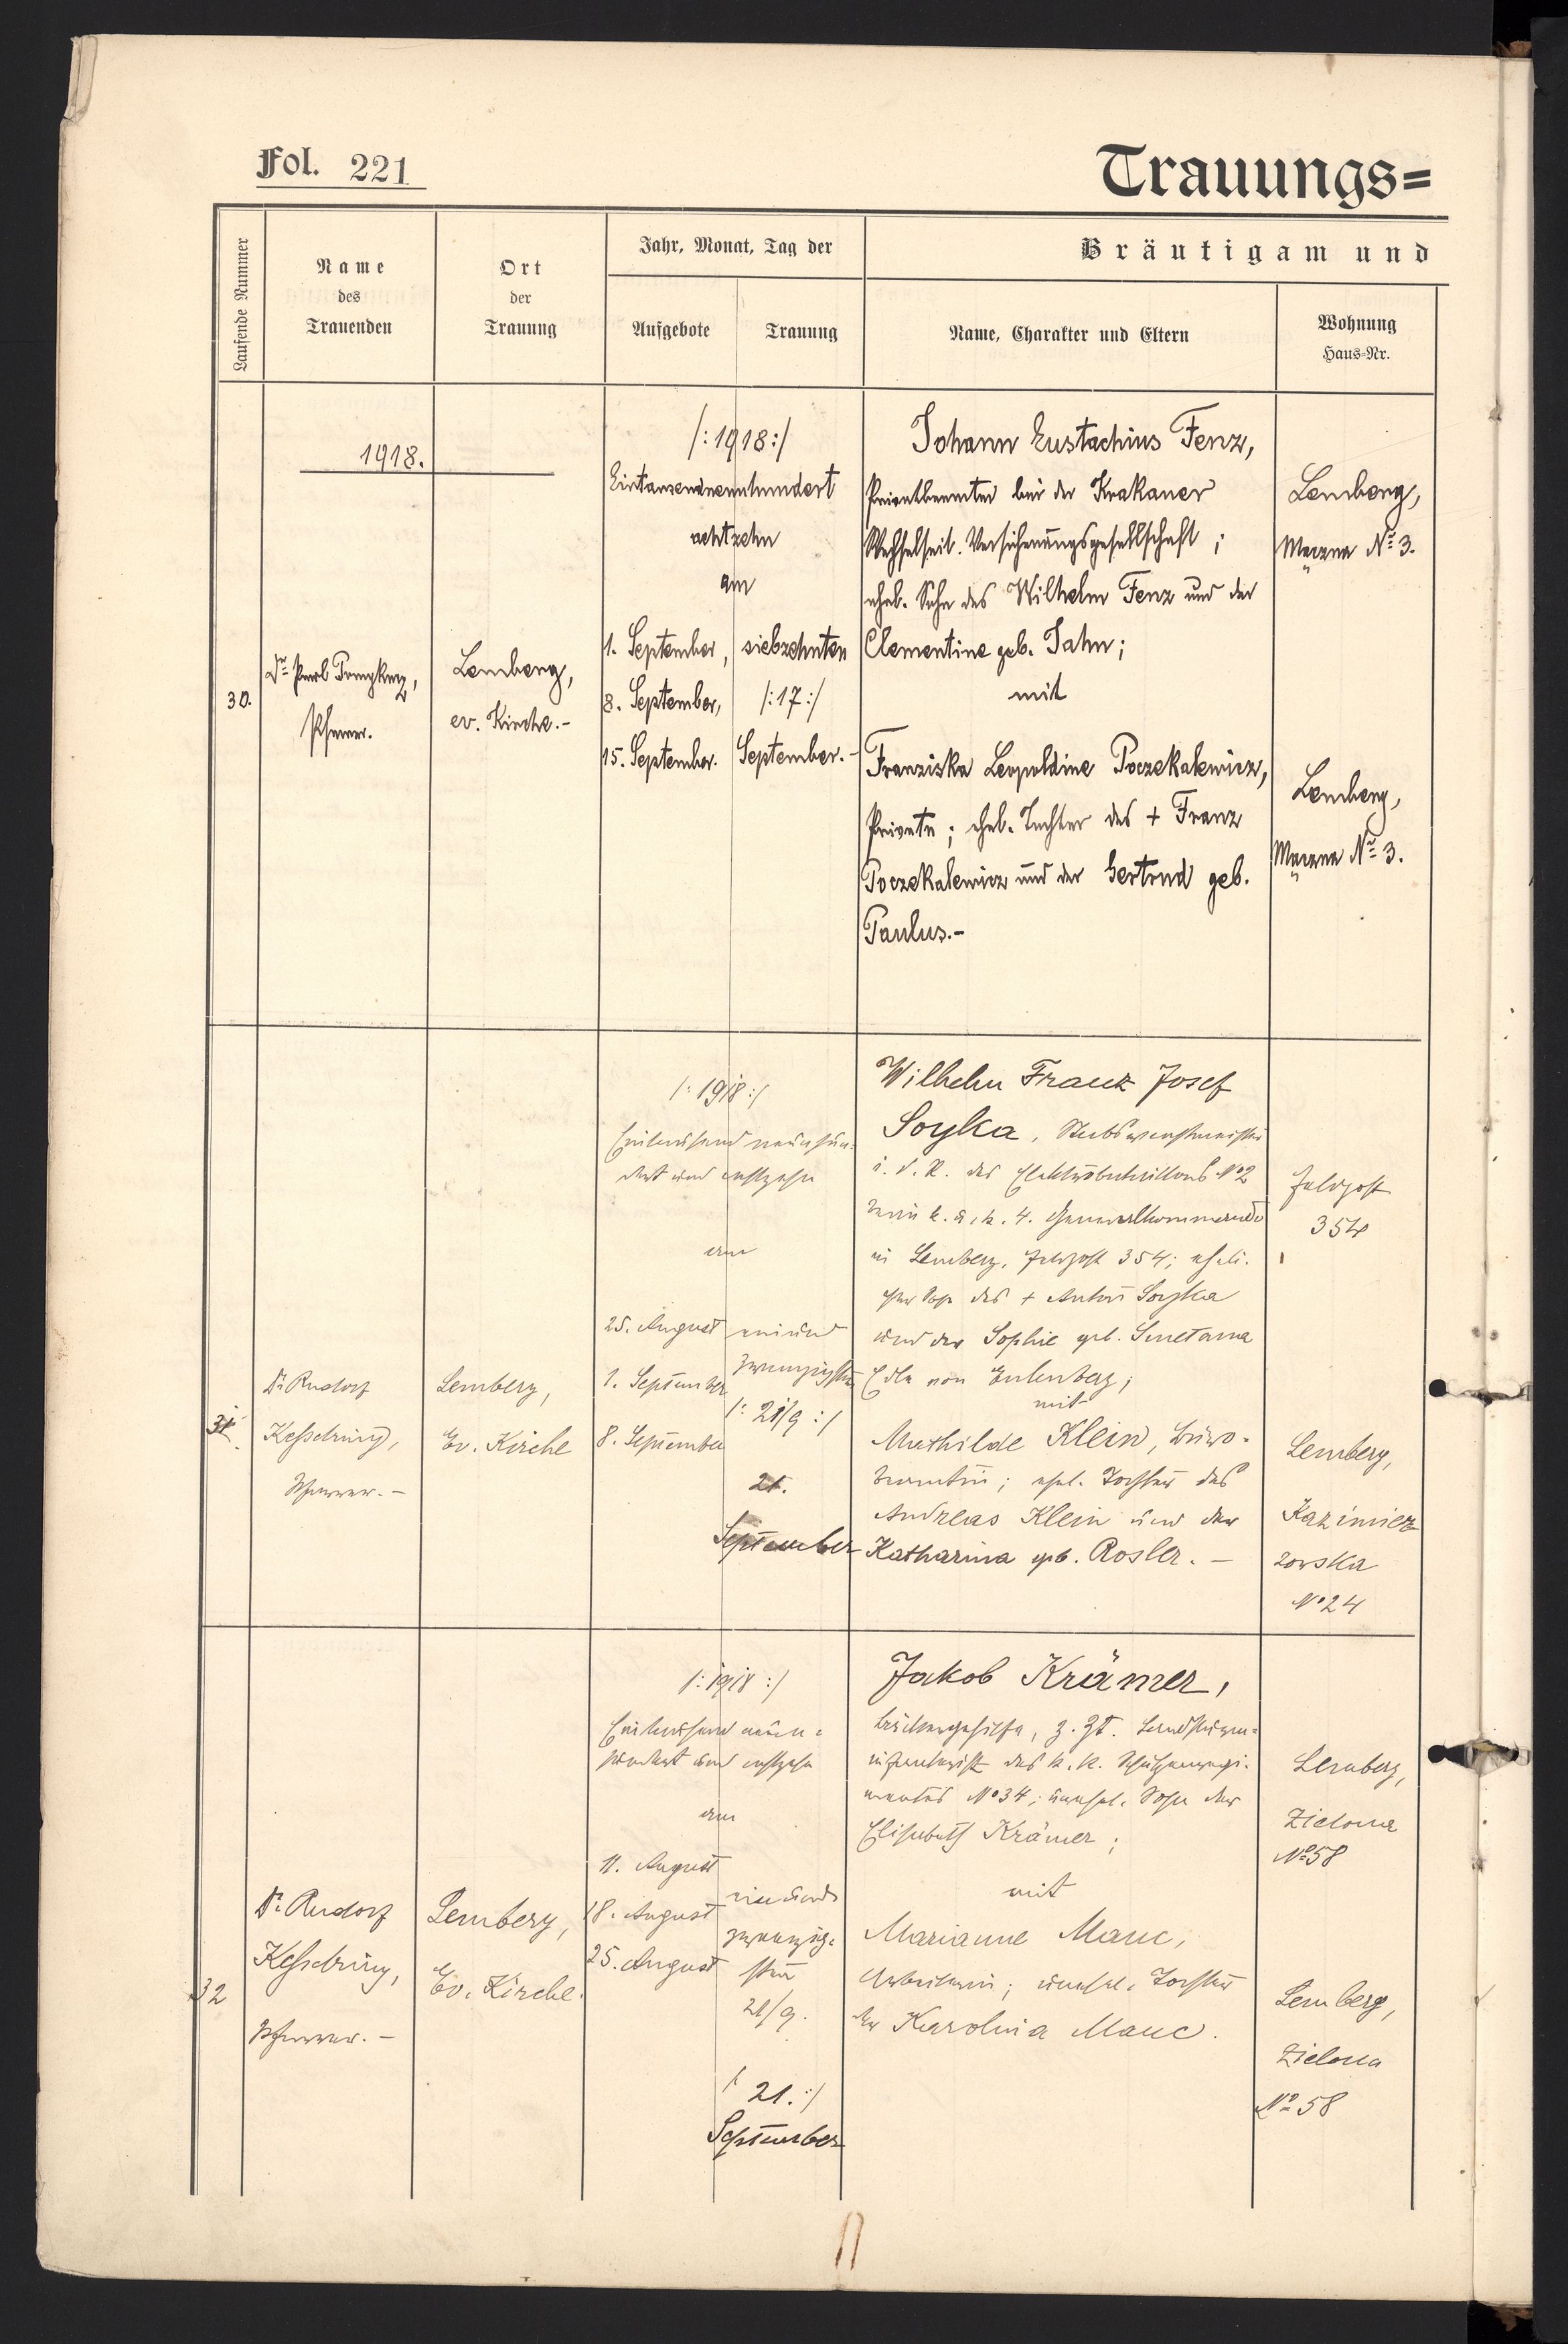 Fol. 221
Trauungs=
Laufende Nummer
Name
des
Trauenden
Ort
der
Trauung
Jahr, Monat, Tag der
Aufgebote
Trauung
Bräutigam und
Name, Charakter und Eltern
Wohnung
Haus=Nr.
1918.
30.
Pfarrer.
Lemberg,
ev. Kirche.-
/:1918:/
Eintausendneunhundert
achtzehn
am
1. September,
8. September,
15. September.
siebzehnten
/:17:/
September.-
Johann Eustachius Fenz,
Privatbeamter bei der Krakauer
Wechselseit. Versicherungsgesellschaft ;
ehel. Sohn des Wilhelm Fenz und der
Clementine geb. Jahn;
mit
Franziska Leopoldine Poczekalewicz,
Private; ehel. Tochter des + Franz
Poczekalewicz und der Gertrud geb.
Paulus.-
Lemberg,
No 3.
Lemberg,
No 3.
31.
Dr Rudolf
Kesselring,
Pfarrer.-
Lemberg,
Ev. Kirche
/:1918:/
Eintausend neunhun-
dert und achtzehn
am
25. August
1. September
8. September
einund
zwanzigsten
/: 21/9 :/
21.
September
Wilhelm Franz Josef
Soyka, Stabswachtmeister
i. d. R. des Elektrobataillons No 2
beim k. u. k. 4. Generalkommando
in Lemberg, Feldpost 354; eheli-
cher Sohn des + Anton Soyka
und der Sophie geb. Smetana
Edle von Eulenberg;
mit
Mathilde Klein, Büro-
beamtin; ehel. Tochter des
Andreas Klein und der
Katharina geb. Rosler. -
Feldpost
354
Lemberg,
Kazimierz
zowska
No 24
32
Dr Rudolf
Kesselring,
Pfarrer. -
Lemberg,
Ev. Kirche.
/:1918:/
Eintausend neun-
hundert und achtzehn
am
11. August
18. August
25. August
einund
zwanzig-
sten
21/9.
/: 21.:/
September
Jakob Krämer,
Bäckergehilfe, z. Zt. Landsturm-
infanterist des k. k. Schützenregi-
mentes No 34; unehel. Sohn der
Elisabeth Krämer;
mit
Marianne Mauc,
Arbeiterin; unehel. Tochter
der Karolina Mauc.
Lemberg,
Zielona
No 58
Lemberg,
Zielona
No 58